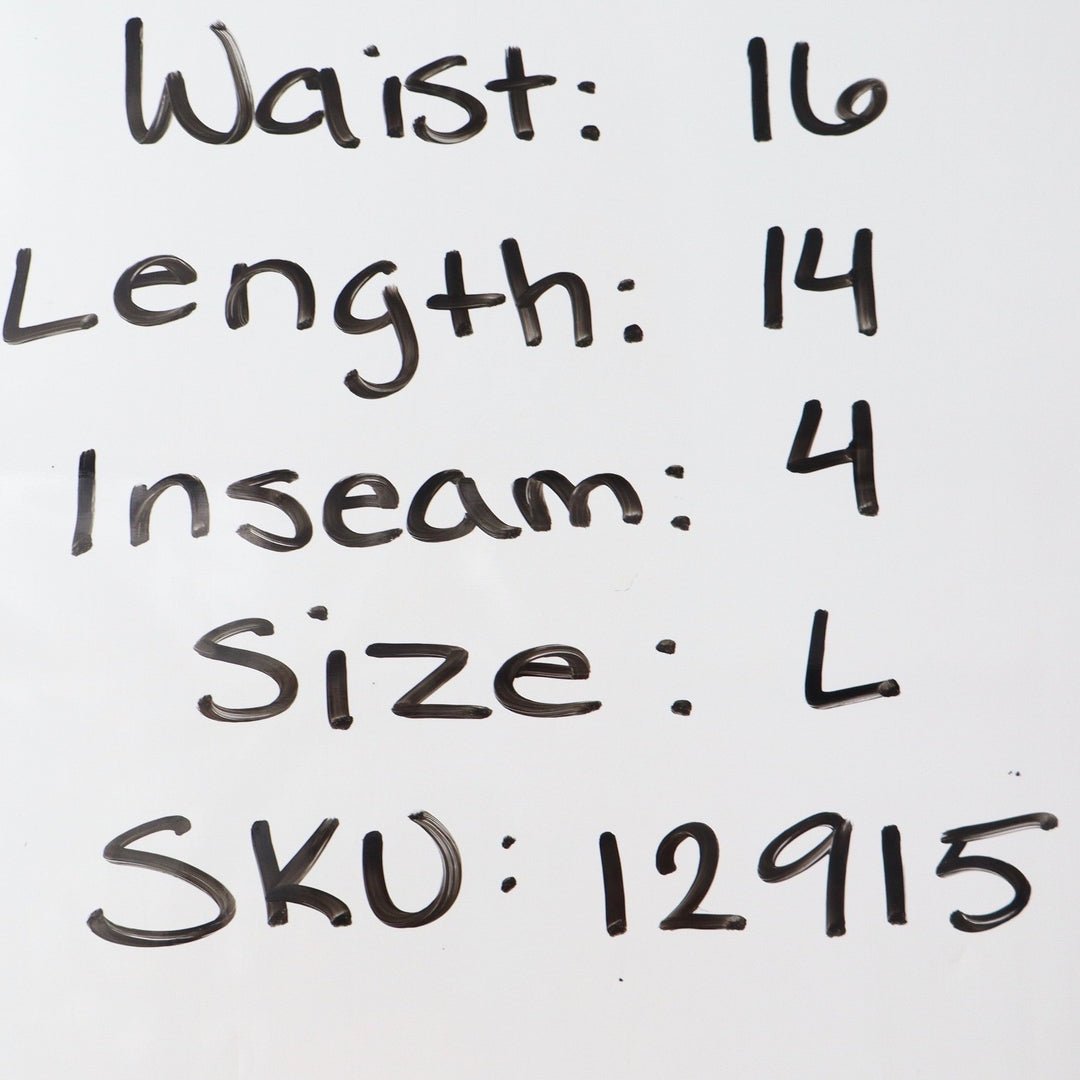 Waist: 16
Length: 14
Inseam: 4
Size: L
SKU: 12915